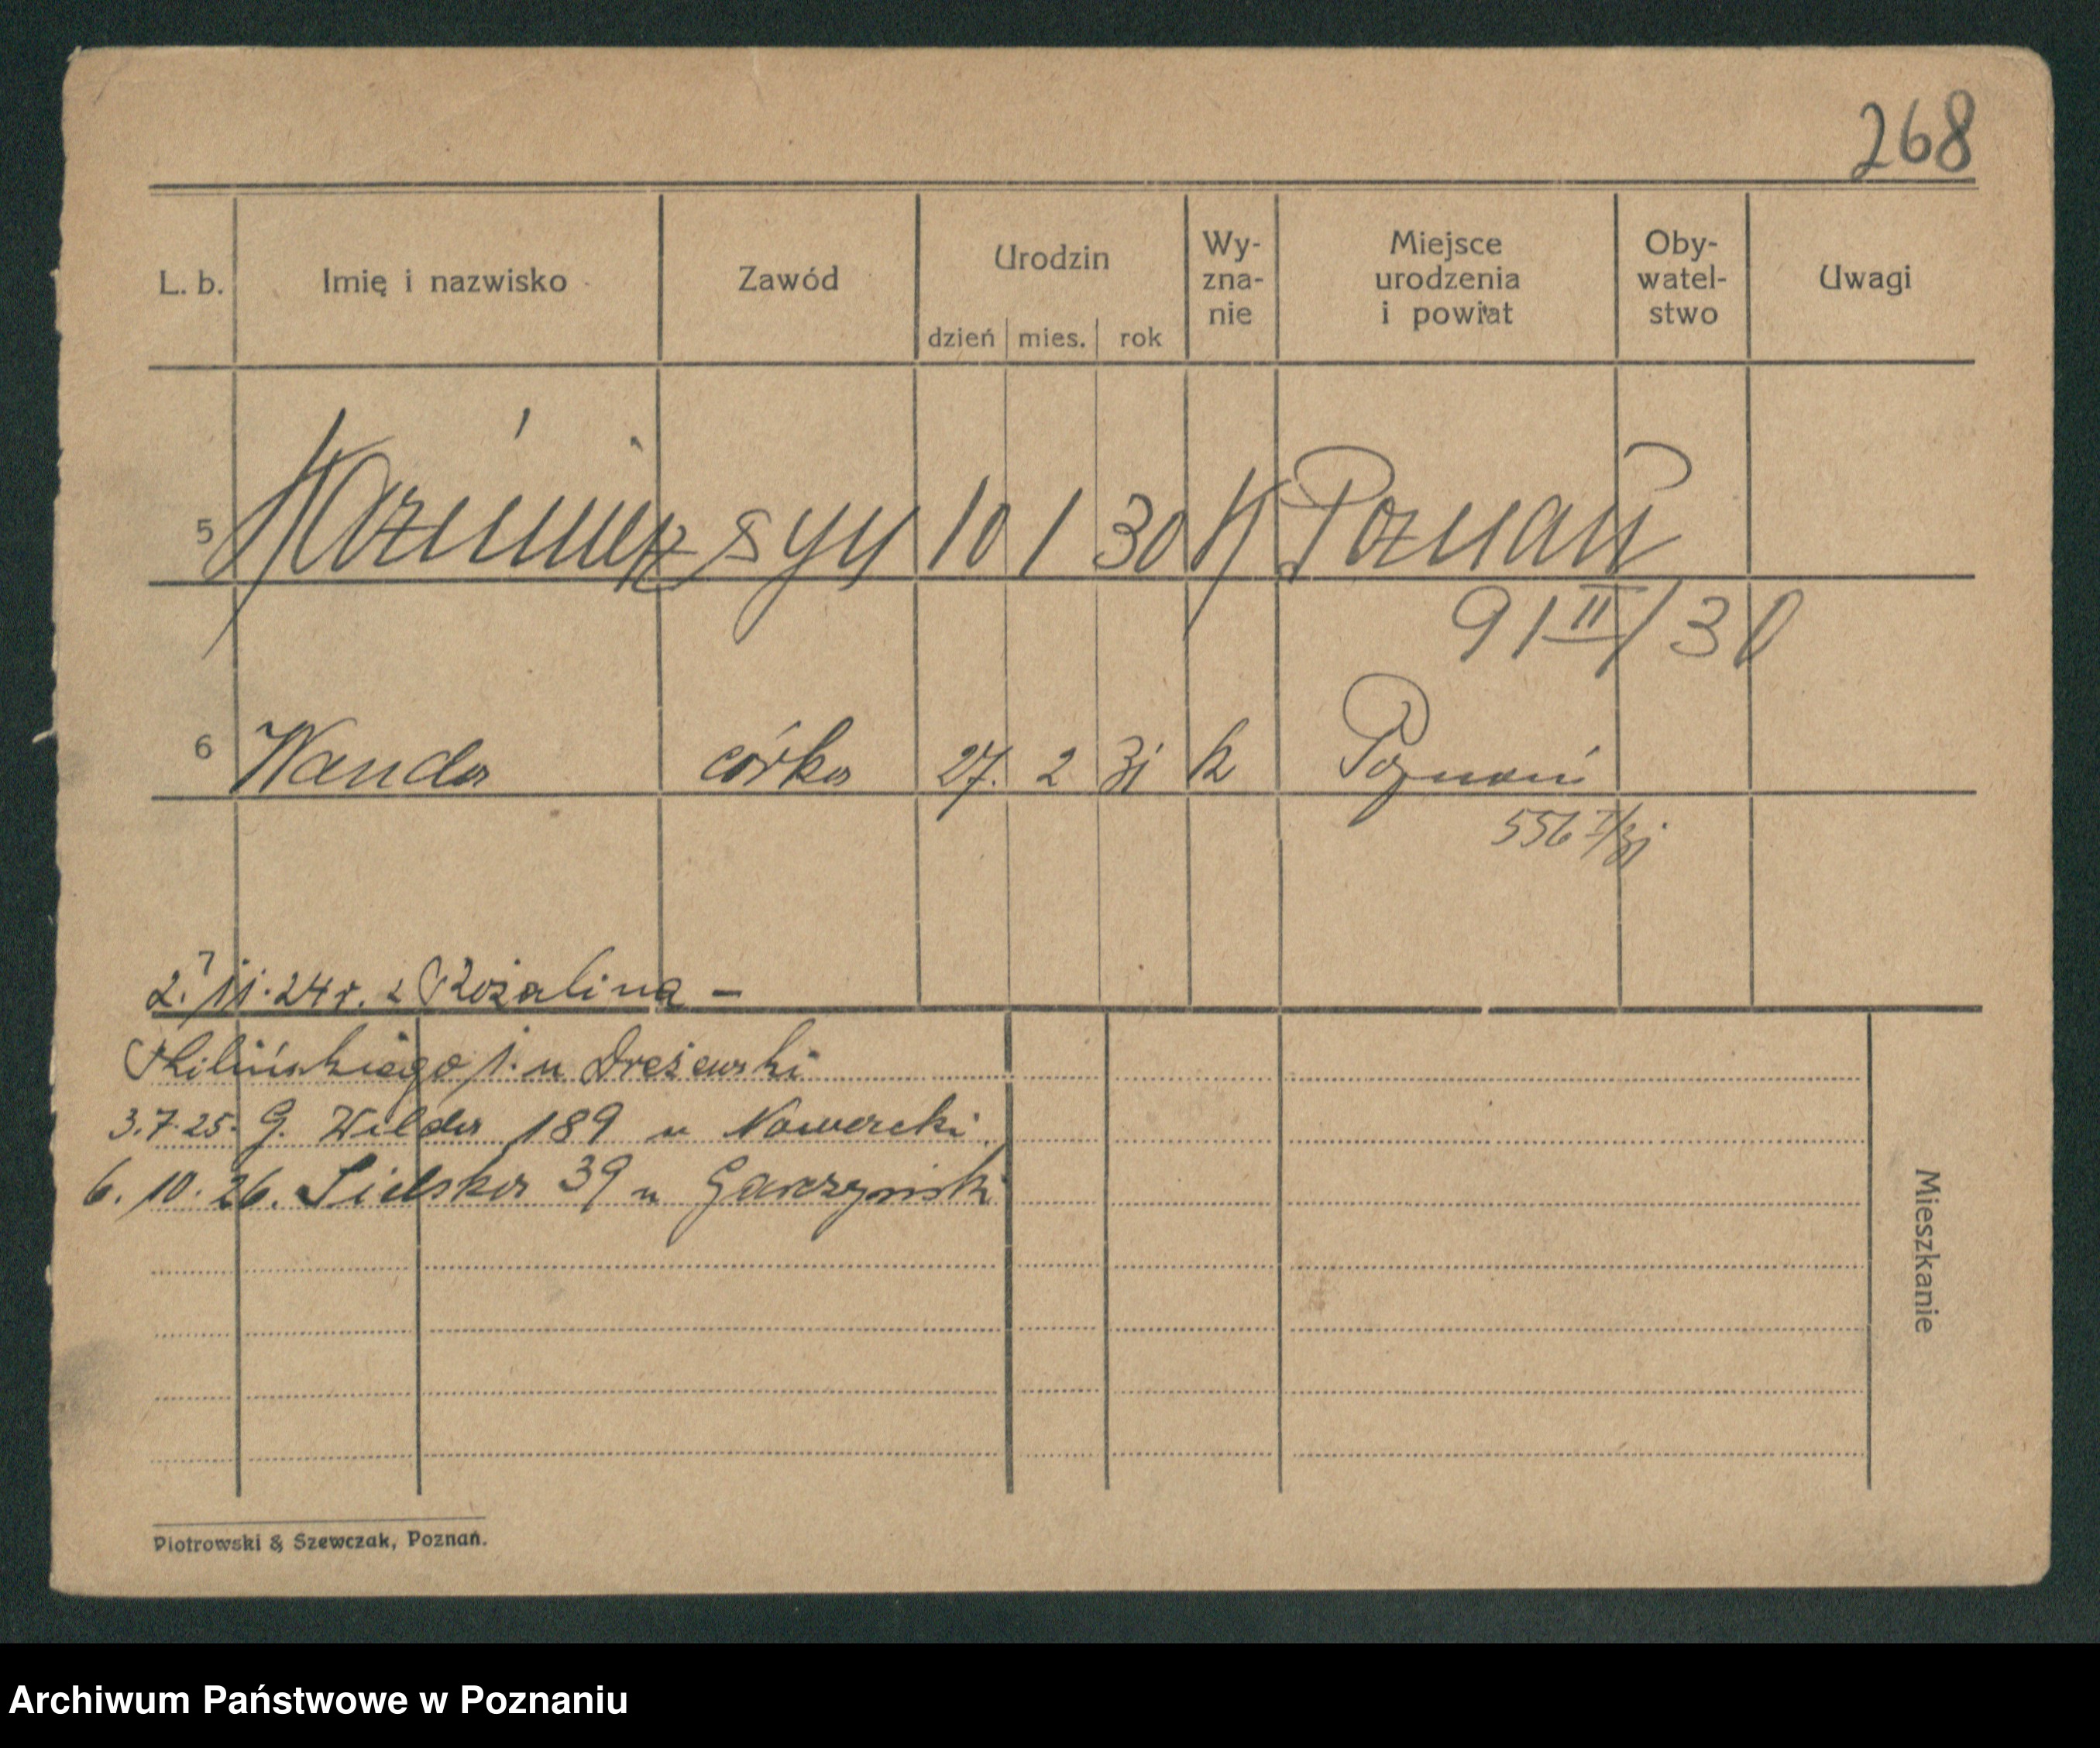 268
L. b. Imię i nazwisko Zawód Urodzin dzień mies. rok Wy-zna-nie Miejsce urodzenia i powiat Oby-watel-stwo Uwagi
5 Kaźimierz syn 10 1 30 K Poznań
91 II/30
6 Wanda córka 27. 2 31 k Poznań
556 I/31
2. 11. 24 r. z Rożalina —
Kilińskiego 1. u Dreżewski
3.7.25. G. Wilda 189 u Nowacki
6. 10. 26. Sielska 39 u Garczyński
Mieszkanie
Piotrowski & Szewczak, Poznań.
Archiwum Państwowe w Poznaniu